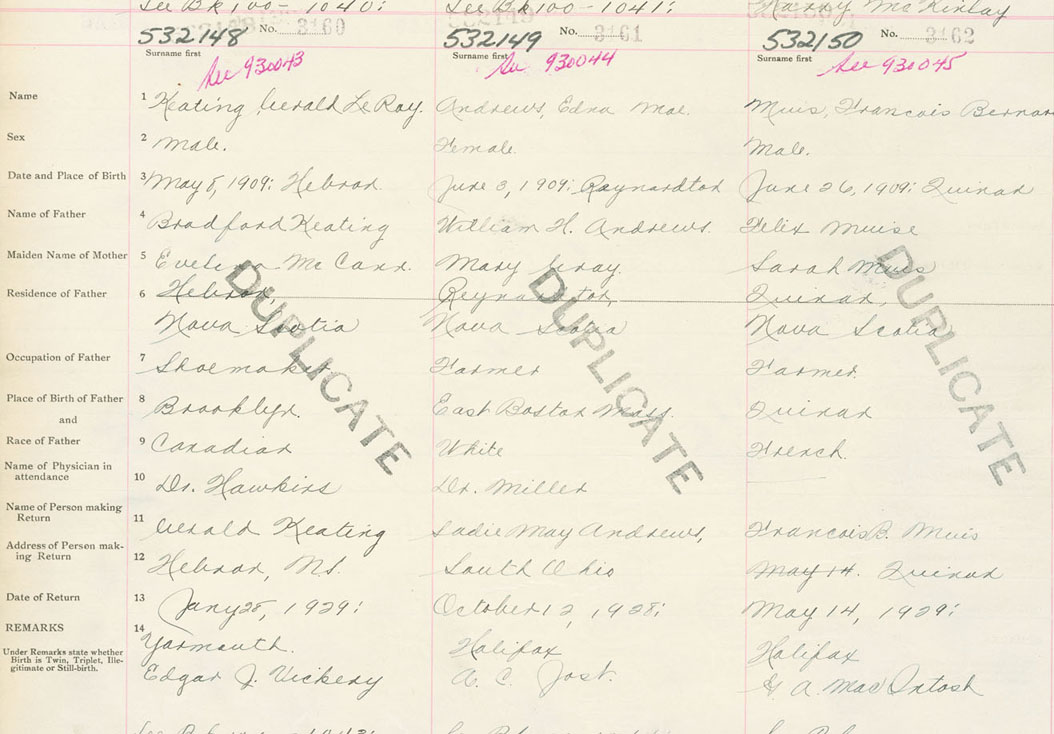 See Bk 100 - 1040: See Bk 100 - 1041: Harry McKinlay
532148 No. 3160 532149 No. 3161 532150 No. 3162
Surname first Surname first Surname first
See 930043 See 930044 See 930045
Name 1 Keating, Gerald LeRoy. Andrews, Edna Mae. Muis, Francois Bernar
Sex 2 Male. Female. Male.
Date and Place of Birth 3 May 8, 1909: Hebron. June 3, 1909: Raynardton June 26, 1909: Quinan
Name of Father 4 Bradford Keating William H. Andrews. Felix Muise
Maiden Name of Mother 5 Evelina McCann. Mary Gray. Sarah Muis
Residence of Father 6 Hebron, Reynardton, Quinan,
Nova Scotia Nova Scotia Nova Scotia
DUPLICATE DUPLICATE DUPLICATE
Occupation of Father 7 Shoemaker. Farmer Farmer.
Place of Birth of Father 8 Brooklyn. East Boston Mass. Quinan
and
Race of Father 9 Canadian White French.
Name of Physician in
attendance 10 Dr. Hawkins Dr. Miller
Name of Person making
Return 11 Gerald Keating Sadie May Andrews, Francois B. Muis
Address of Person mak-
ing Return 12 Hebron, N.S. South Ohio May 14. Quinan
Date of Return 13 Jany 28, 1929: October 12, 1928: May 14, 1929:
REMARKS 14 Yarmouth. Halifax Halifax
Under Remarks state whether
Birth is Twin, Triplet, Ille-
gitimate or Still-birth. Edgar J. Vickery A. C. Jost. G A. MacIntosh